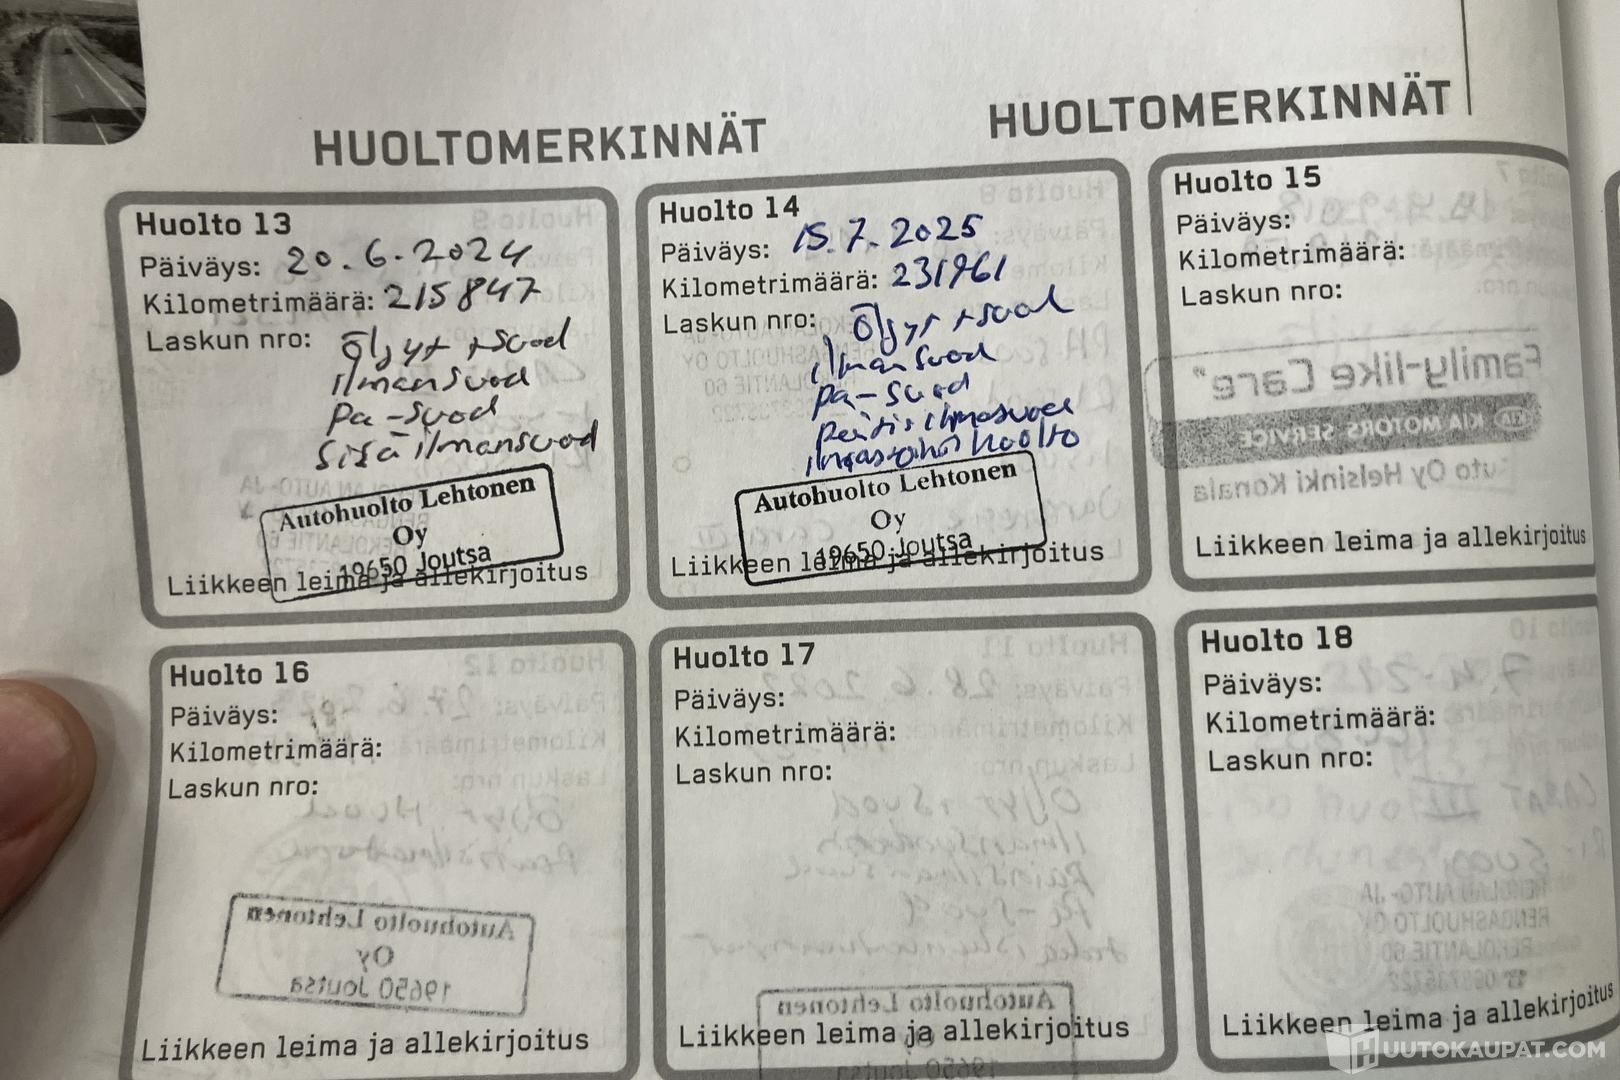 HUOLTOMERKINNÄT
HUOLTOMERKINNÄT
Huolto 13
Päiväys: 20.6.2024
Kilometrimäärä: 215847
Laskun nro: Öljyt + suod
ilmansuod
pa-suod
sisäilmansuod
Autohuolto Lehtonen
Oy
19650 Joutsa
Liikkeen leima ja allekirjoitus
Huolto 14
Päiväys: 15.7.2025
Kilometrimäärä: 231961
Laskun nro: Öljyt + suod
ilmansuod
pa-suod
huolto
Autohuolto Lehtonen
Oy
19650 Joutsa
Liikkeen leima ja allekirjoitus
Huolto 15
Päiväys:
Kilometrimäärä:
Laskun nro:
"Family-like Care"
KIA MOTORS SERVICE
Auto Oy Helsinki Konala
Liikkeen leima ja allekirjoitus
Huolto 16
Päiväys:
Kilometrimäärä:
Laskun nro:
Autohuolto Lehtonen
Oy
19650 Joutsa
Liikkeen leima ja allekirjoitus
Huolto 17
Päiväys:
Kilometrimäärä:
Laskun nro:
Autohuolto Lehtonen
Liikkeen leima ja allekirjoitus
19650
Huolto 18
Päiväys:
Kilometrimäärä:
Laskun nro:
Liikkeen leima ja allekirjoitus
HUUTOKAUPAT.COM